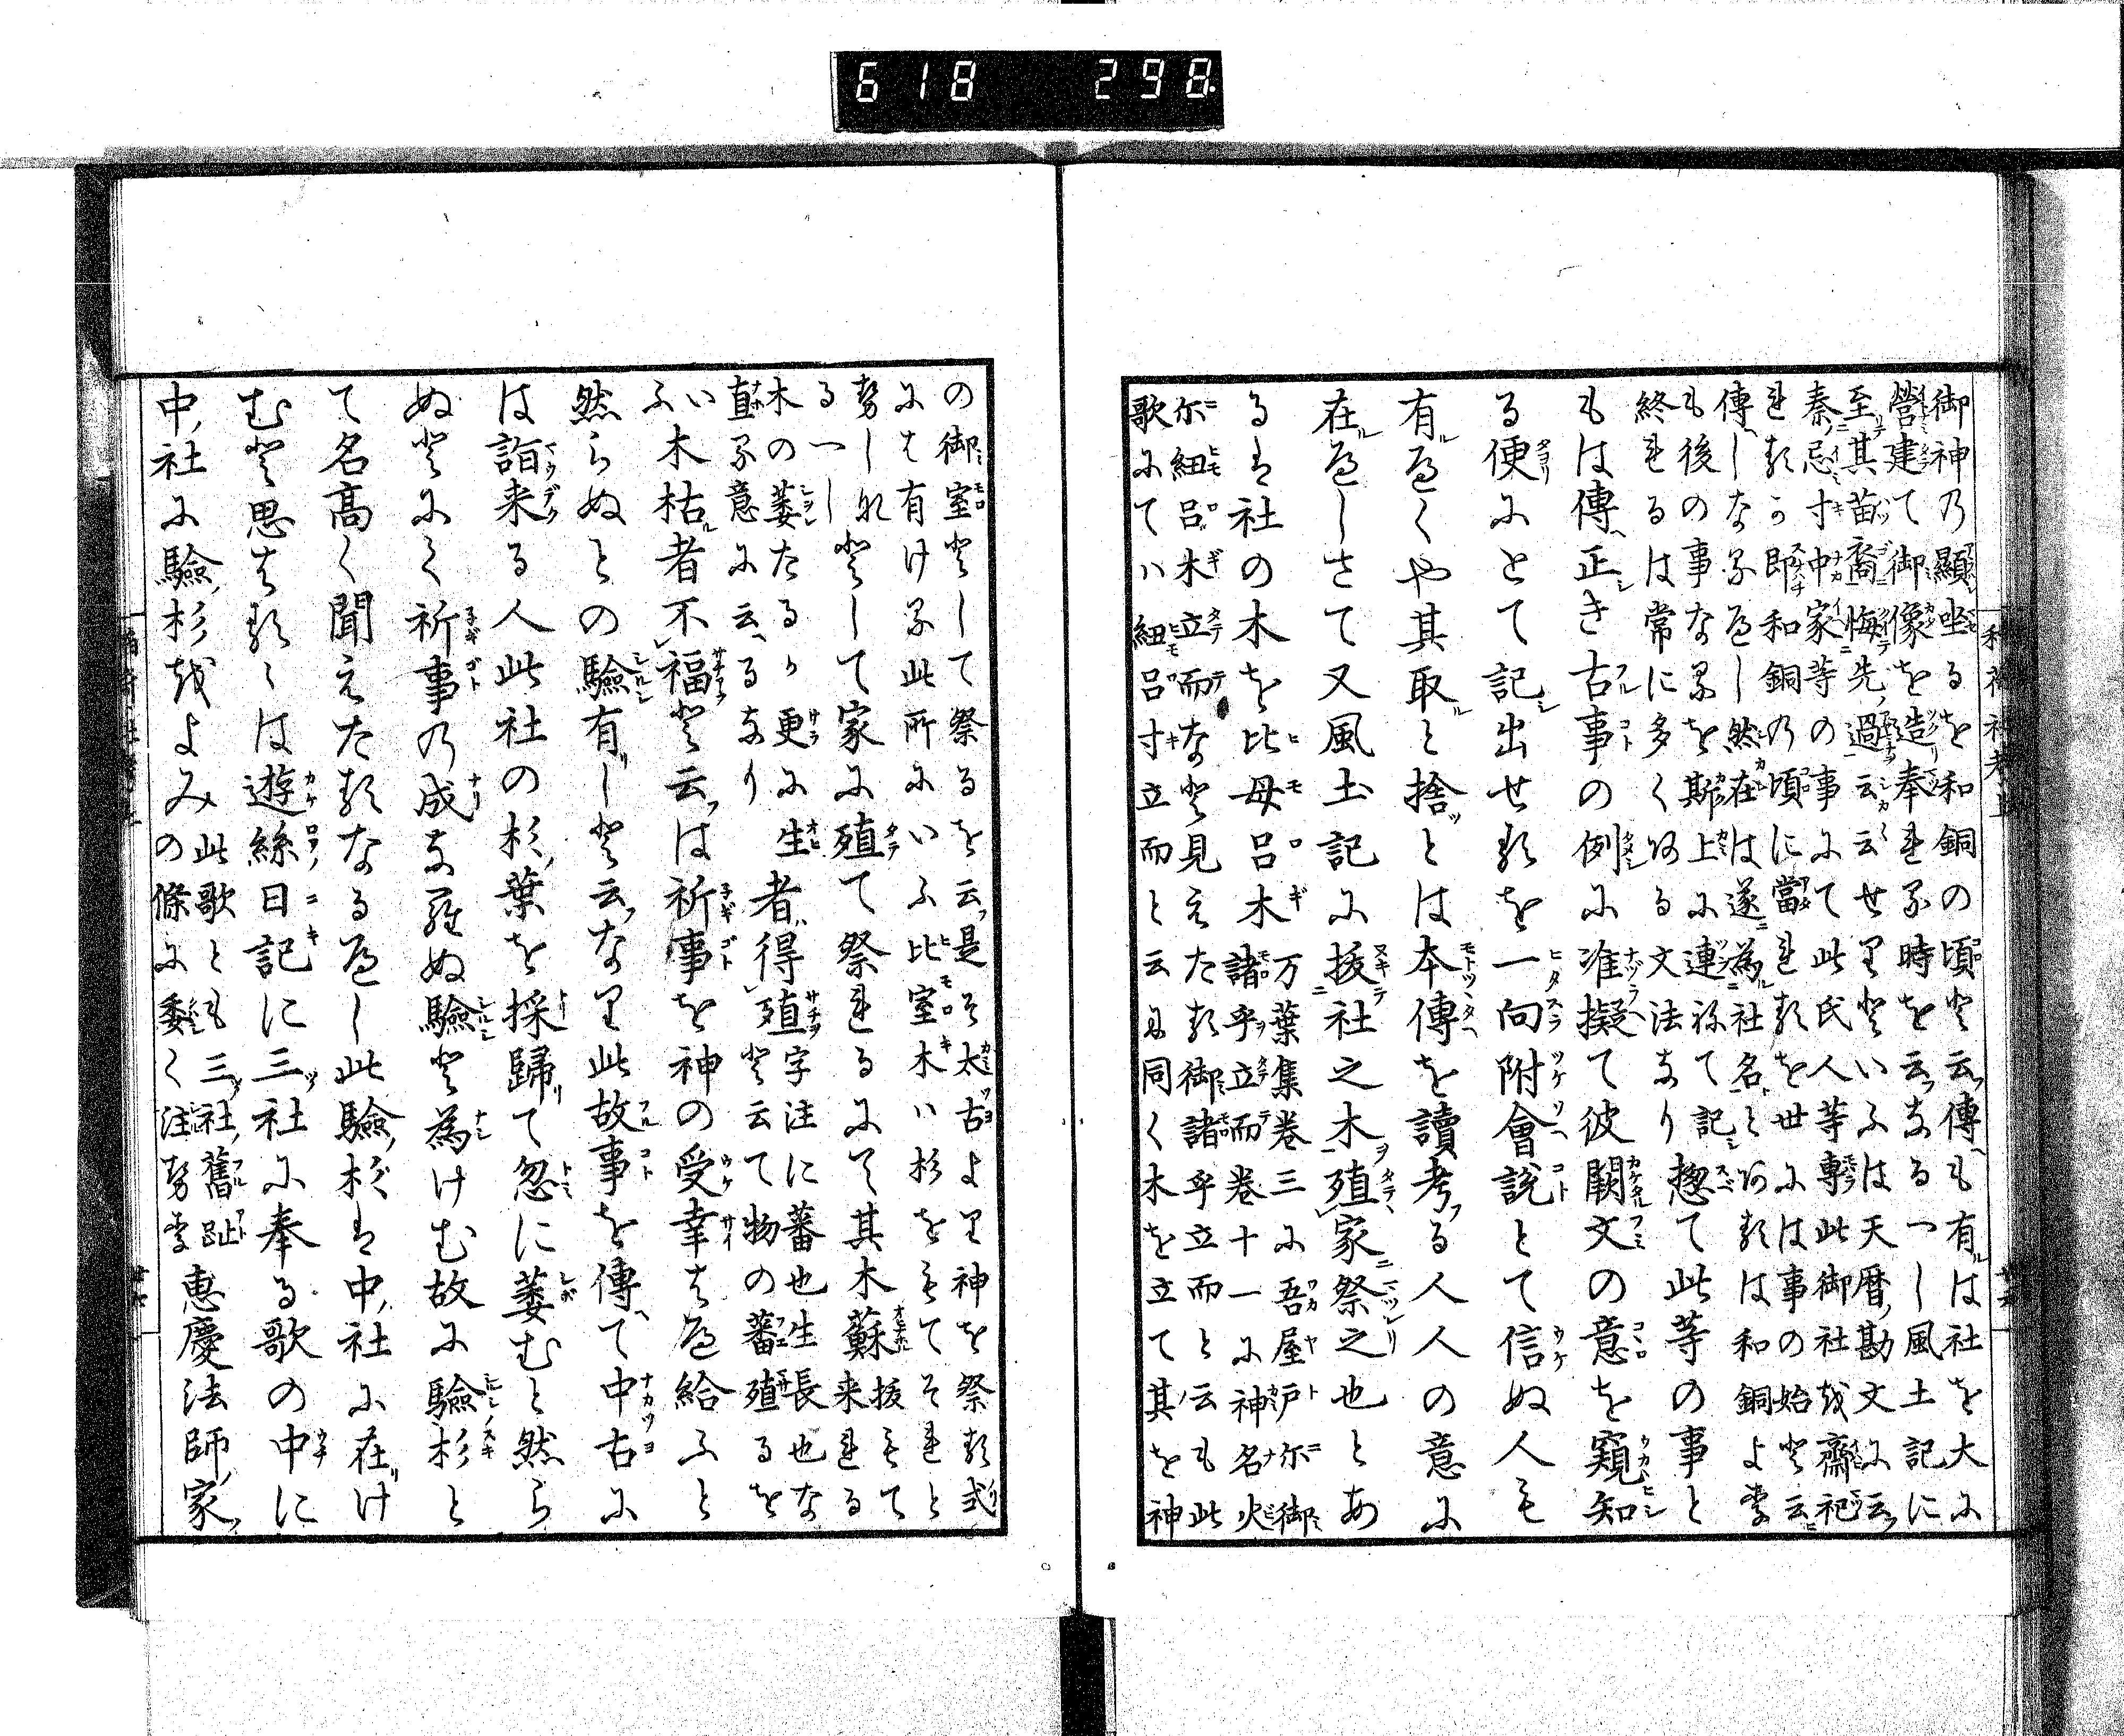 618 298
御神乃顯坐るを和銅の頃と云傳も有は社を大に
營建て御像を造奉れる時を云なる一し風土記に
至其苗裔悔先過云云せりといふは天暦勘文に云
秦忌寸中家等の事にて此氏人等專此御社を齋祀
れるか即和銅乃頃に當れるを世には事の始と云
傳しなるべし然在は遂為社名とあるは和銅より
も後の事なるを斯上に連ねて記
終れるは常に多くある文法なり惣て此等の事と
もは傳正き古事の例に准擬て彼闕文の意を窺知
る便にとて記出せるを一向附會説とて信ぬ人も
有べくや其取と捨とは本傳を讀考る人人の意に
在べしさて又風土記に拔社之木殖家祭之也とあ
るは社の木を比母呂木
万葉集卷三に吾屋戸尓御
諸乎立而卷十一に神名火
尓紐呂木立而など見えたる御諸乎立而と云も此
歌にてハ紐呂寸立而と云に同く木を立て其を神
の御室として祭るを云是そ太古より神を祭る式
には有ける此所にいふ比室木ハ杉をもてそれと
せしれとして家に殖て祭れるにて其木蘇来れる
る一し
拔もて
木の萎たるか更に生者得殖
字注に蕃也生長也な
直る意に云るなり
と云て物の蕃殖るを
いふ
木枯者不福と云は祈事を神の受幸はへ給ふと
然らぬとの驗有しと云なり此故事を傳て中古に
は詣来る人此社の杉葉を採歸て忽に萎むと然ら
ぬとにて祈事乃成なる羅ぬ驗と為けむ故に驗杉と
て名高く聞えたるなるべし此驗杉は中社に在け
むと思はるるは遊絲日記に三社に奉る歌の中に
中社に驗杉をよみ
此歌とも三社舊趾
の條に委く注せり
惠慶法師家